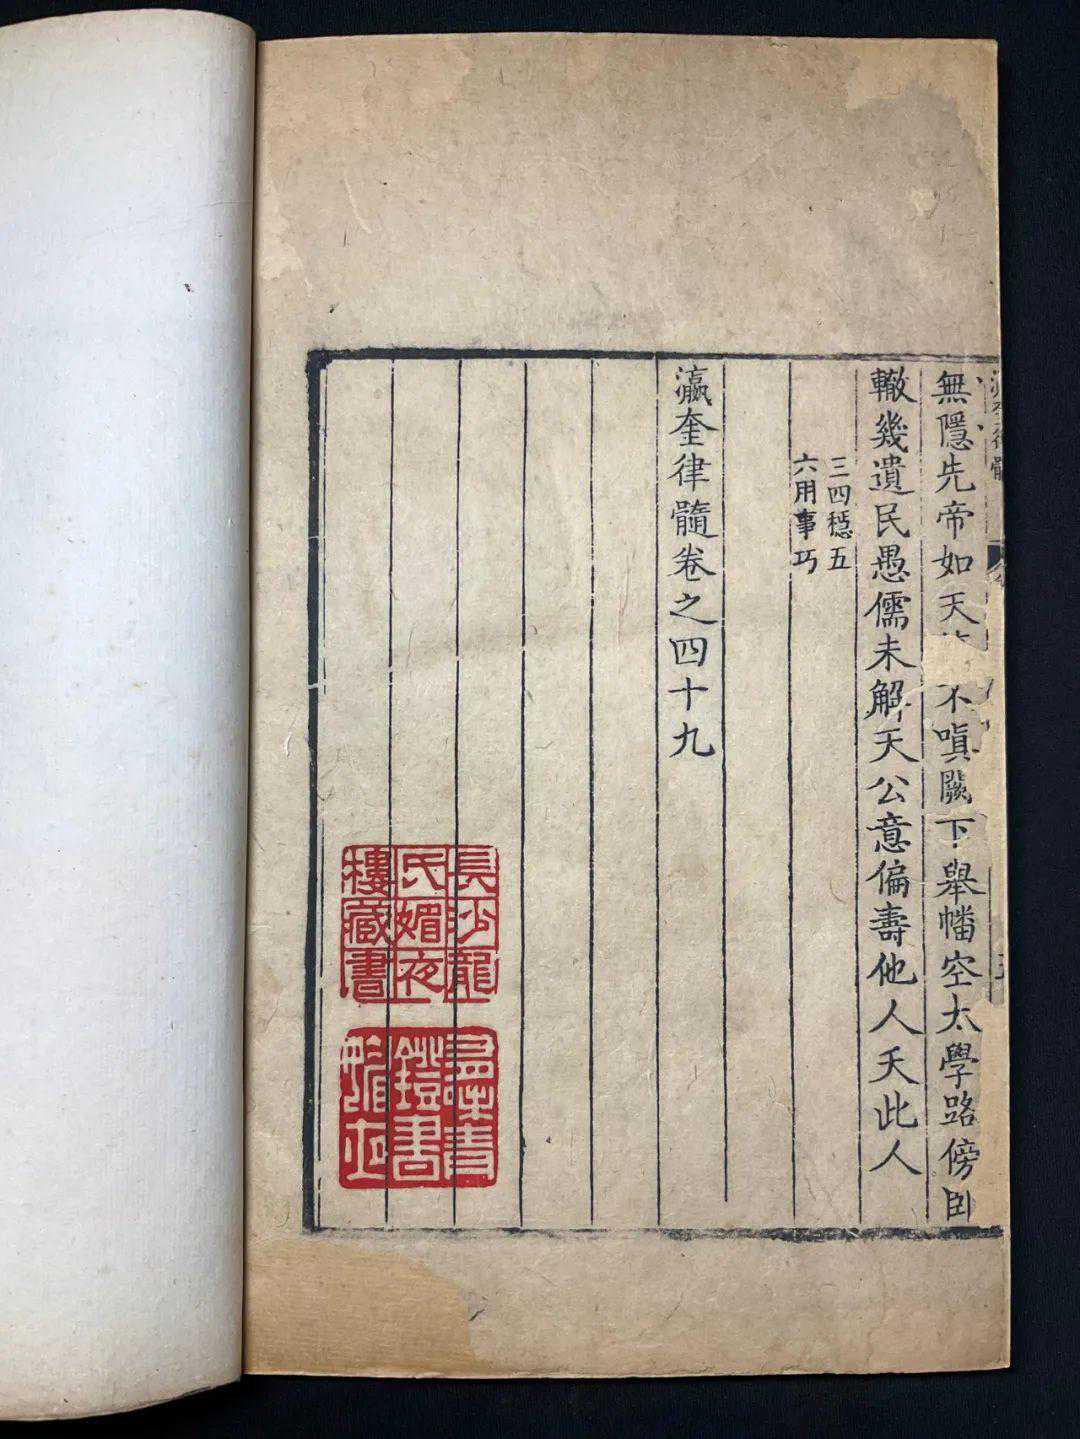 無隱先帝如天不嗔闕下舉幡空太學路傍臥
轍幾遺民愚儒未解天公意偏壽他人夭此人
三四穩五
六用事巧
瀛奎律髓卷之四十九
長沙龍
氏媚夜
樓藏書